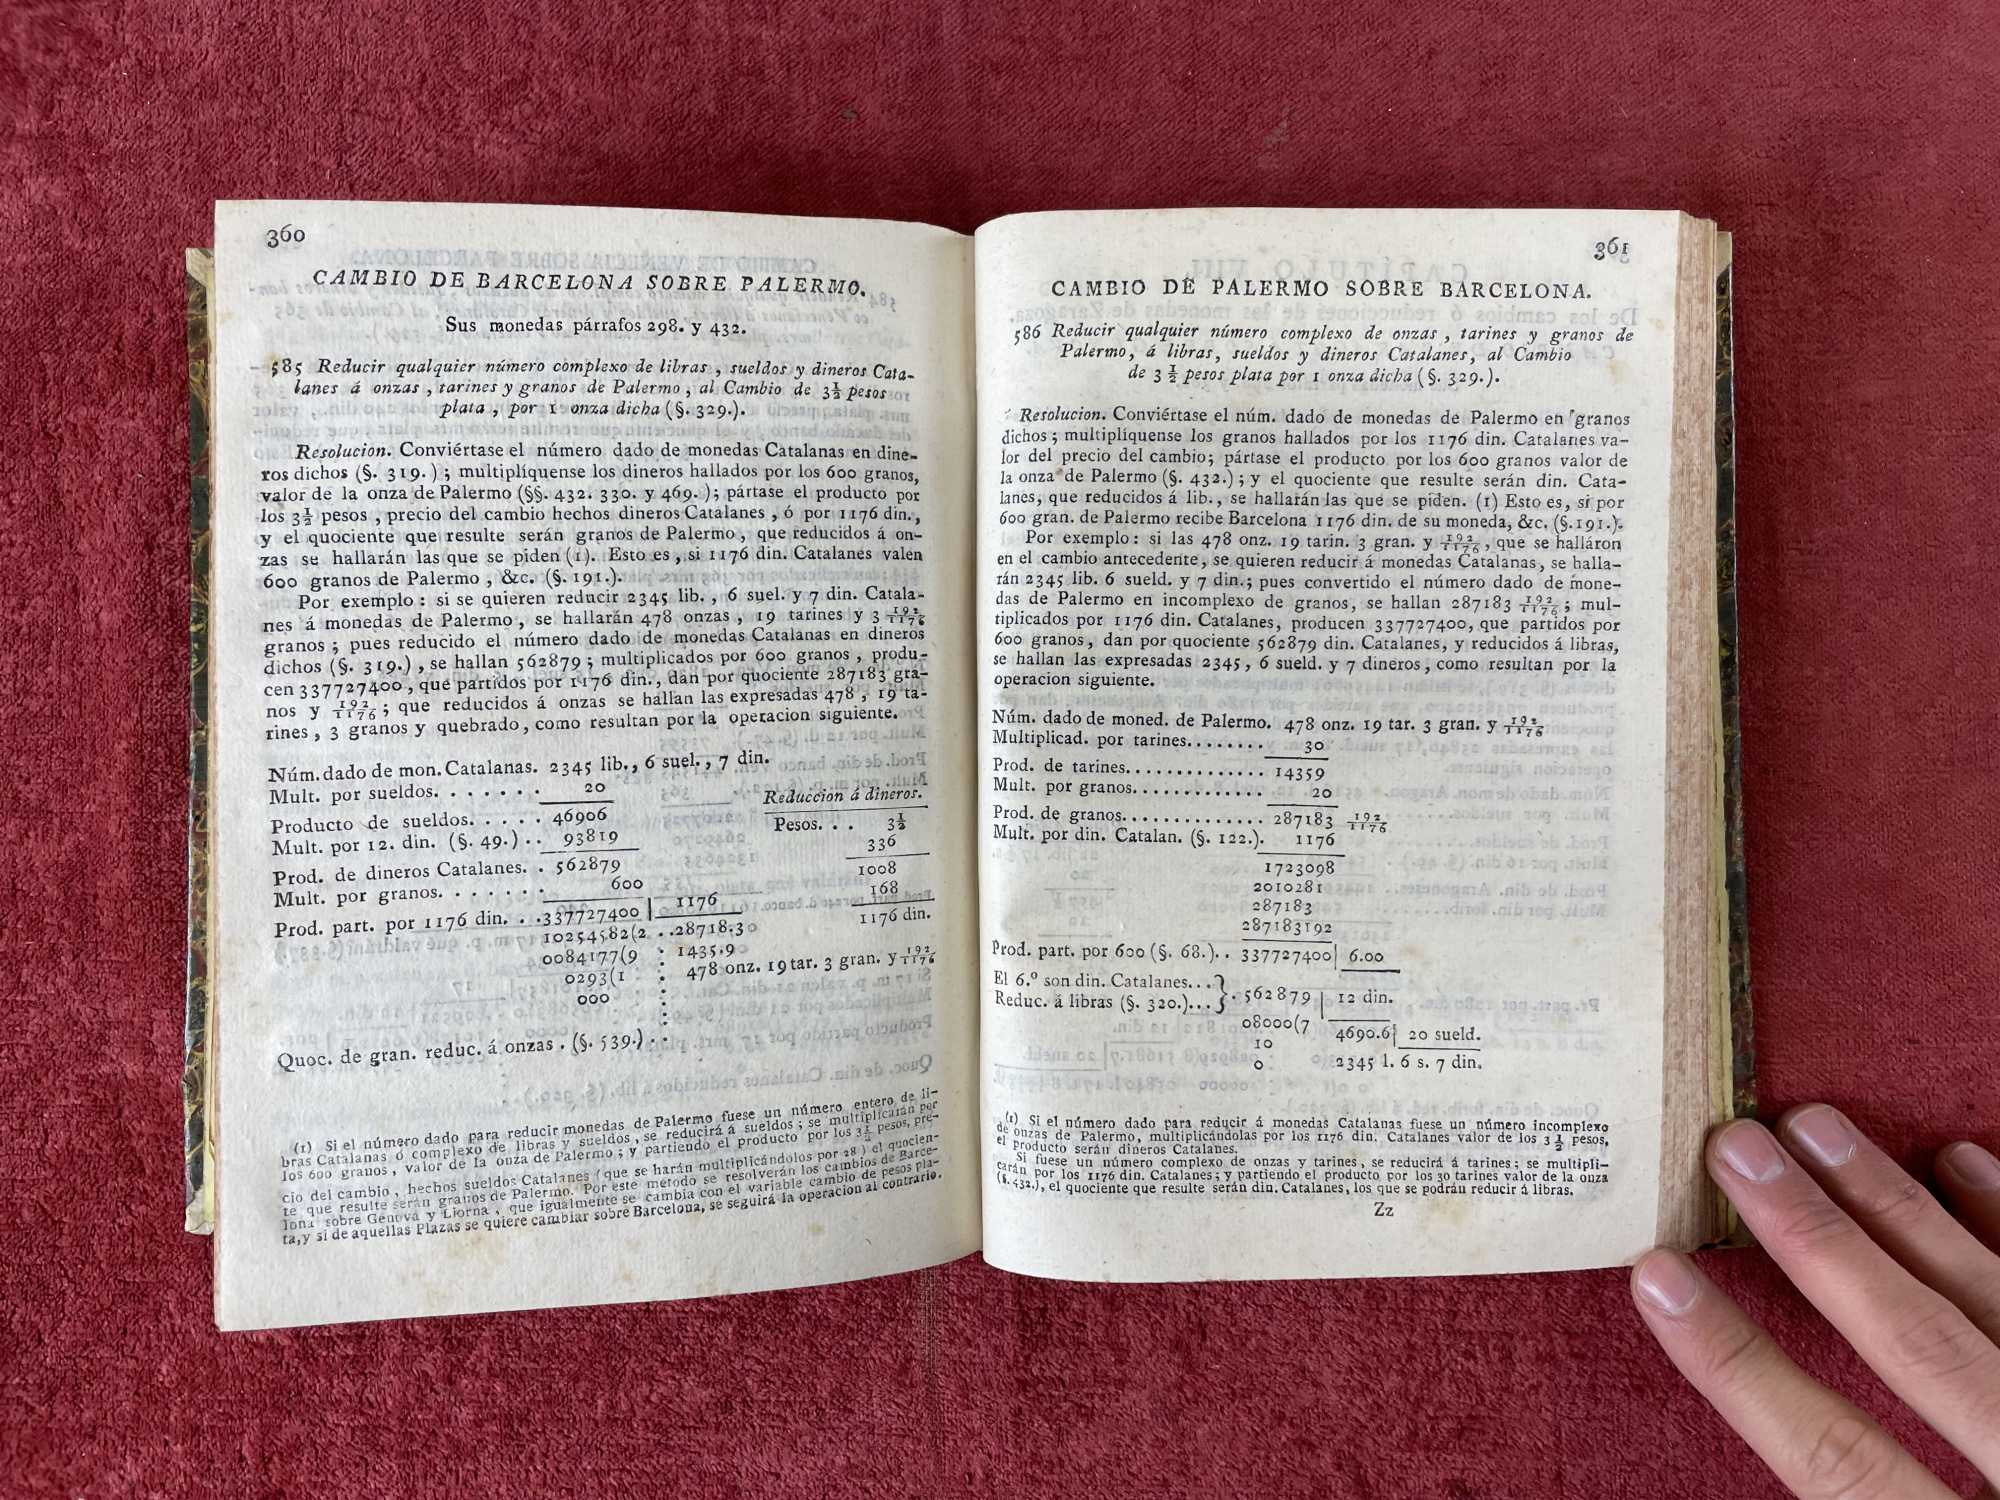 360
CAMBIO DE BARCELONA SOBRE PALERMO.
Sus monedas párrafos 298. y 432.
585 Reducir qualquier número complexo de libras , sueldos y dineros Cata-
lanes á onzas , tarines y granos de Palermo , al Cambio de 3½ pesos
plata , por 1 onza dicha (§. 329.).
Resolucion. Conviértase el número dado de monedas Catalanas en dine-
ros dichos (§. 319. ) ; multiplíquense los dineros hallados por los 600 granos,
valor de la onza de Palermo (§§. 432. 330. y 469. ); pártase el producto por
los 3½ pesos , precio del cambio hechos dineros Catalanes , ó por 1176 din.,
y el quociente que resulte serán granos de Palermo , que reducidos á on-
zas se hallarán las que se piden (1). Esto es , si 1176 din. Catalanes valen
600 granos de Palermo , &c. (§. 191.).
Por exemplo : si se quieren reducir 2345 lib. , 6 suel. y 7 din. Catala-
nes á monedas de Palermo , se hallarán 478 onzas , 19 tarines y 3 192/1176
granos ; pues reducido el número dado de monedas Catalanas en dineros
dichos (§. 319.) , se hallan 562879 ; multiplicados por 600 granos , produ-
cen 337727400 , que partidos por 1176 din., dan por quociente 287183 gra-
nos y 192/1176 ; que reducidos á onzas se hallan las expresadas 478 , 19 ta-
rines , 3 granos y quebrado, como resultan por la operacion siguiente.
Núm. dado de mon. Catalanas. 2345 lib., 6 suel., 7 din.
Mult. por sueldos. . . . . . . 20
Reduccion á dineros.
Producto de sueldos. . . . . 46906
Pesos. . . 3½
Mult. por 12. din. (§. 49.) . . 93819
336
Prod. de dineros Catalanes. . 562879
1008
Mult. por granos. . . . . . . 600
168
Prod. part. por 1176 din. . . 337727400 | 1176
1176 din.
10254582(2 . . 28718.30
0084177(9 : 1435.9
0293(1 : 478 onz. 19 tar. 3 gran. y 192/1176
000
Quoc. de gran. reduc. á onzas . (§. 539.) . .
(1) Si el número dado para reducir monedas de Palermo fuese un número entero de li-
bras Catalanas ó complexo de libras y sueldos , se reducirá á sueldos ; se multiplicarán por
los 600 granos , valor de la onza de Palermo ; y partiendo el producto por los 3½ pesos, pre-
cio del cambio , hechos sueldos Catalanes (que se harán multiplicándolos por 28 ) el quocien-
te que resulte serán granos de Palermo. Por este método se resolverán los cambios de Barce-
lona sobre Genova y Liorna , que igualmente se cambia con el variable cambio de pesos pla-
ta, y si de aquellas Plazas se quiere cambiar sobre Barcelona, se seguirá la operacion al contrario.
361
CAMBIO DE PALERMO SOBRE BARCELONA.
586 Reducir qualquier número complexo de onzas , tarines y granos de
Palermo, á libras, sueldos y dineros Catalanes, al Cambio
de 3 ½ pesos plata por 1 onza dicha (§. 329.).
Resolucion. Conviértase el núm. dado de monedas de Palermo en granos
dichos ; multiplíquense los granos hallados por los 1176 din. Catalanes va-
lor del precio del cambio; pártase el producto por los 600 granos valor de
la onza de Palermo (§. 432.) ; y el quociente que resulte serán din. Cata-
lanes, que reducidos á lib., se hallarán las que se piden. (1) Esto es, si por
600 gran. de Palermo recibe Barcelona 1176 din. de su moneda, &c. (§.191.).
Por exemplo : si las 478 onz. 19 tarin. 3 gran. y 192/1176 , que se halláron
en el cambio antecedente, se quieren reducir á monedas Catalanas, se halla-
rán 2345 lib. 6 sueld. y 7 din.; pues convertido el número dado de mone-
das de Palermo en incomplexo de granos, se hallan 287183 192/1176 ; mul-
tiplicados por 1176 din. Catalanes, producen 337727400, que partidos por
600 granos, dan por quociente 562879 din. Catalanes, y reducidos á libras,
se hallan las expresadas 2345 , 6 sueld. y 7 dineros, como resultan por la
operacion siguiente.
Núm. dado de moned. de Palermo. 478 onz. 19 tar. 3 gran. y 192/1176
Multiplicad. por tarines. . . . . . . . 30
Prod. de tarines. . . . . . . . . . . . . . 14359
Mult. por granos. . . . . . . . . . . . . 20
Prod. de granos. . . . . . . . . . . . . . 287183 192/1176
Mult. por din. Catalan. (§. 122.). 1176
1723098
2010281
287183
287183192
Prod. part. por 600 (§. 68.). . 337727400 | 6.00
El 6.º son din. Catalanes. . .
Reduc. á libras (§. 320.). . . } . 562879 | 12 din.
08000(7 4690.6 | 20 sueld.
10
0 2345 l. 6 s. 7 din.
(1) Si el número dado para reducir á monedas Catalanas fuese un número incomplexo
de onzas de Palermo, multiplicándolas por los 1176 din. Catalanes valor de los 3 ½ pesos,
el producto serán dineros Catalanes.
Si fuese un número complexo de onzas y tarines, se reducirá á tarines; se multipli-
carán por los 1176 din. Catalanes; y partiendo el producto por los 30 tarines valor de la onza
(§. 432.), el quociente que resulte serán din. Catalanes, los que se podrán reducir á libras.
Zz